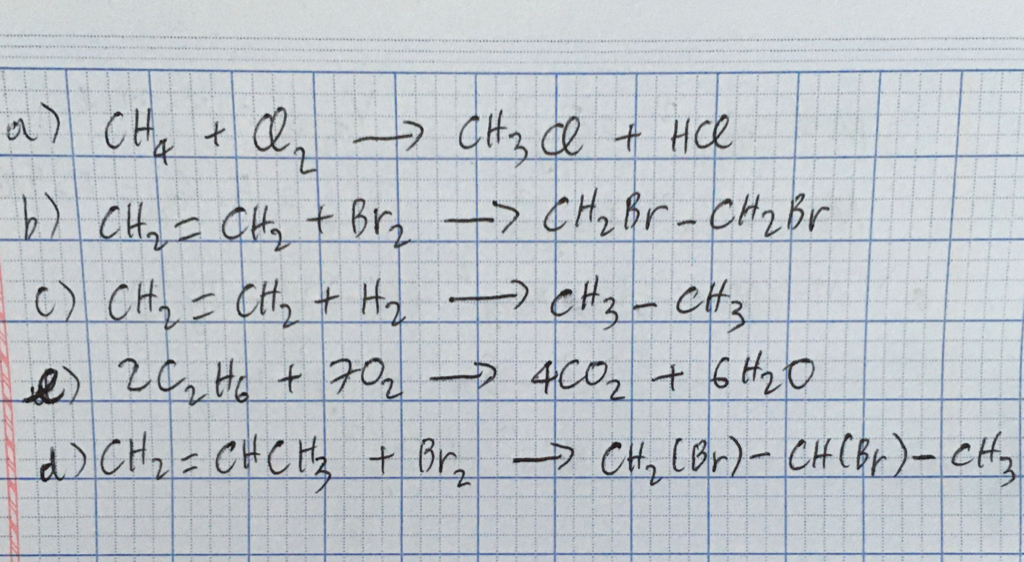 a) CH₄ + Cl₂ ⟶ CH₃Cl + HCl
b) CH₂ = CH₂ + Br₂ ⟶ CH₂Br – CH₂Br
c) CH₂ = CH₂ + H₂ ⟶ CH₃ – CH₃
e) 2C₂H₆ + 7O₂ ⟶ 4CO₂ + 6H₂O
d) CH₂ = CHCH₃ + Br₂ ⟶ CH₂(Br) – CH(Br) – CH₃